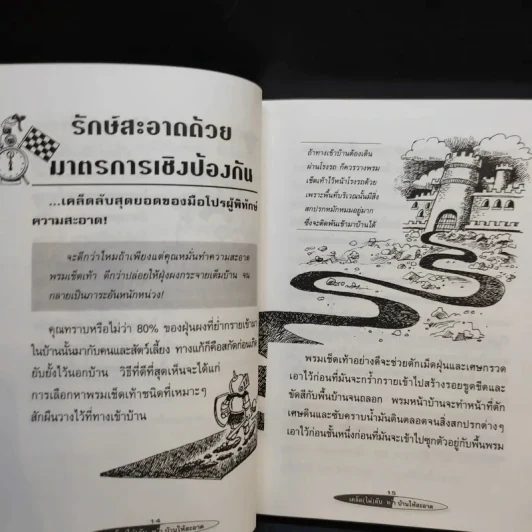 รักษ์สะอาดด้วย
มาตรการเชิงป้องกัน
...เคล็ดลับสุดยอดของมือโปรผู้พิทักษ์
ความสะอาด!
จะดีกว่าไหมถ้าเพียงแต่คุณหมั่นทำความสะอาด
พรมเช็ดเท้า ดีกว่าปล่อยให้ฝุ่งผงกระจายเต็มบ้าน จน
กลายเป็นภาระอันหนักหน่วง!
คุณทราบหรือไม่ว่า 80% ของฝุ่นผงที่ย่ำกรายเข้ามา
ในบ้านนั้นมากับคนและสัตว์เลี้ยง ทางแก้ก็คือสกัดก่อนเกิด
ยับยั้งไว้นอกบ้าน วิธีที่ดีที่สุดเห็นจะได้แก่
การเลือกหาพรมเช็ดเท้าชนิดที่เหมาะๆ
สักผืนวางไว้ที่ทางเข้าบ้าน
14
ถ้าทางเข้าบ้านต้องเดิน
ผ่านโรงรถ ก็ควรวางพรม
เช็ดเท้าไว้หน้าโรงรถด้วย
เพราะพื้นที่บริเวณนั้นมีสิ่ง
สกปรกหมักหมมอยู่มาก
ซึ่งจะติดพันเข้ามาบ้านได้
พรมเช็ดเท้าอย่างดีจะช่วยดักเม็ดฝุ่นและเศษกรวด
เอาไว้ก่อนที่มันจะกร้ำกรายเข้าไปสร้างรอยขูดขีดและ
ขัดสีกับพื้นบ้านจนถลอก พรมหน้าบ้านจะทำหน้าที่ดัก
เศษดินและซับคราบน้ำมันดินตลอดจนสิ่งสกปรกต่างๆ
เอาไว้ก่อนชั้นหนึ่งก่อนที่มันจะเข้าไปซุกตัวอยู่กับพื้นพรม
15
เคล็ด(ไม่)ลับ บ้านให้สะอาด